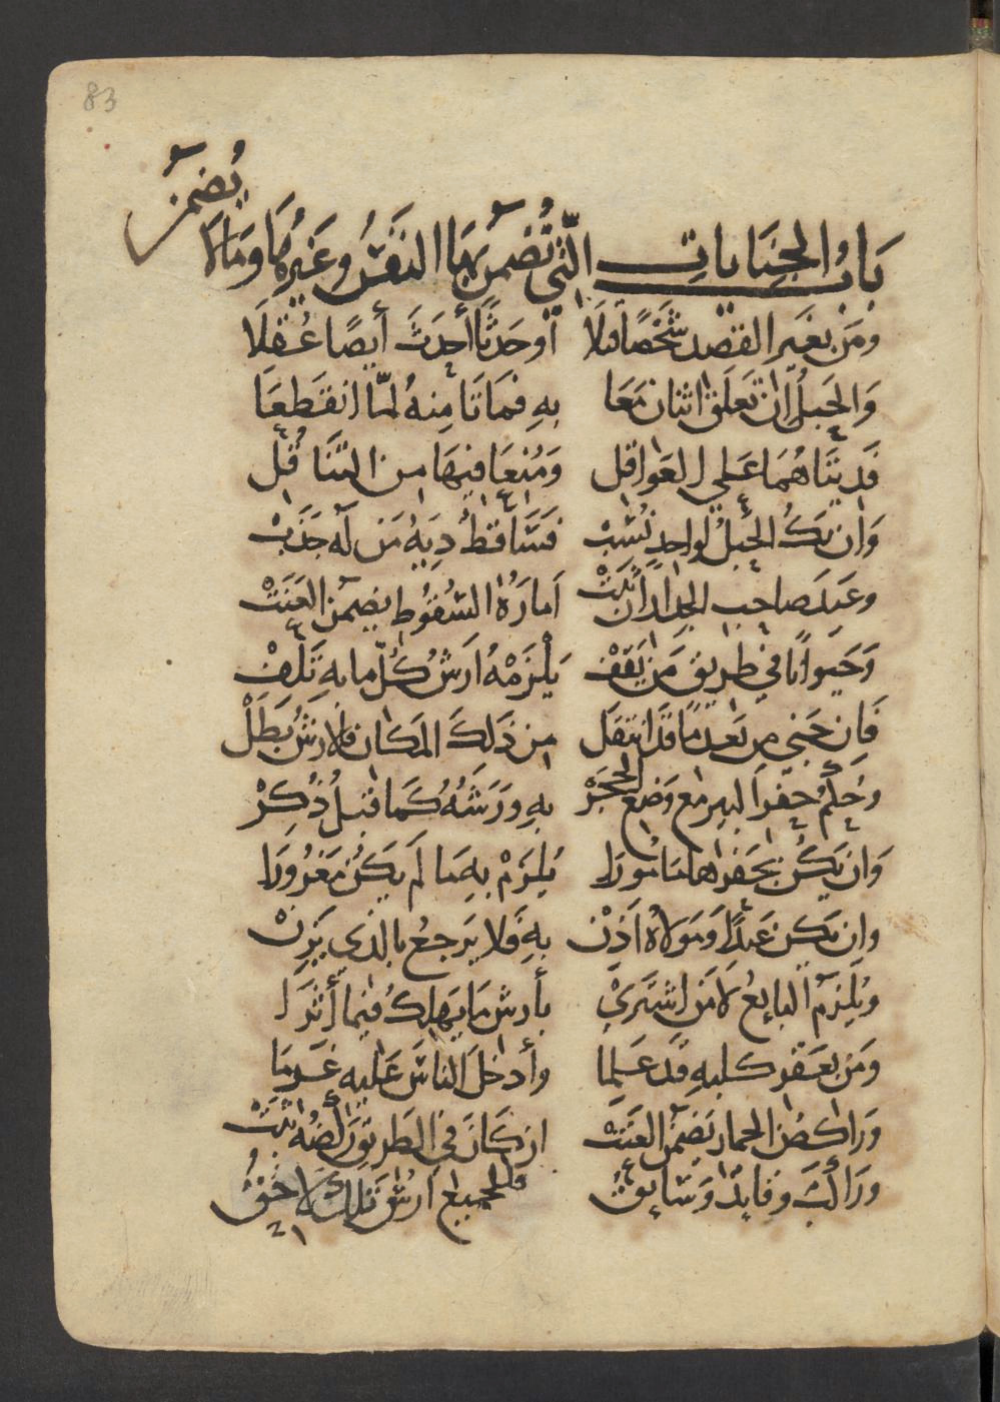 83
بَابُ الجِنَايَاتِ الَّتِي تُضْمَنُ بِهَا النَّفْسُ وغَيْرُهَا وَمَا لَا يُضْمَنُ
ومَن بغَيرِ القصدِ شَخْصًا قَتَلَا أوحَدَثًا أحدَثَ أيضًا عُقِلَا
وَالحَبلُ ان تَعَلَق اثنان مَعَا بهِ فمَاتَا مِنهُ لمّا انقَطعَا
فَديتَاهُمَا عَلي العَواقل وَمُنِعَا فيهَا من التَنَاقُل
وَان يَكُ الحَبلُ لواحِدٍ نُسِبْ فَسَاقطُ دِيَهُ مَن لَه جَذَبْ
وعَندَ صاحب الجِدارِ ان ثَبَتْ اَمارَةُ السُقُوطِ يضمن العَنَتْ
وَحَيوانًا في طريق مَن يَقف يَلْزَمْهُ ارَشُ كُلّ ما بهِ تَلَفْ
فَإن جَني من بَعد مَا قَد انتقَل مِن ذَلِكَ المَكان فالارشُ بَطَلْ
وحُكمُ حفر البير مع وَضعِ الحَجَرْ بهِ ورَشّهُ كَمَا قبلُ ذُكِرْ
وَان يَكُن بحَفرهَا مَامُورا يُلزَمْ بهِ مَا لَم يَكُن مَغرُورَا
وان يَكن عَبدًا وَمَولَاهُ اَذِنْ بهِ فَلا يَرجعُ بالذي يَزِنْ
ويُلزمُ البايعُ لَا مَن اشتَرَيْ بأرش مَا يَهلِكُ فيمَا أثَّرَا
ومَن بعَقرِ كلبهِ قَد عَلِمَا وأدخلَ الناسَ عَليهِ غَرِمَا
ورَاكضُ الحمار يَضمنُ العَنَتْ ان كَانَ في الطَريق رَكضُهُ ثَبَتْ
ورَاكبٌ وقَايدٌ وَسَايقٌ وللجَميع ارشُ تلك لَاحِقُ